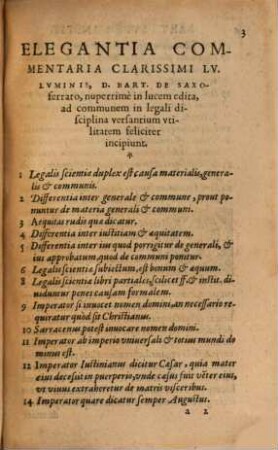 3
ELEGANTIA COM-
MENTARIA CLARISSIMI LV.
LVMINIS, D. BART. DE SAXO-
ferrato, nuperrimè in lucem edita,
ad communem in legali di-
sciplina versantium vti-
litatem feliciter
incipiunt.
*
1 Legalis scientiæ duplex est causa materialis, genera-
lis & communis.
2 Differentia inter generale & commune, prout po-
nuntur de materia generali & communi.
3 Aequitas rudis quæ dicatur.
4 Differentia inter iustitiam & æquitatem.
5 Differentia inter ius quod porrigitur de generali, &
ius approbatum, quod de communi ponitur.
6 Legalis scientiæ subiectum, est bonum & æquum.
8 Legalis scientiæ libri partiales, scilicet ff. & instit. di-
uiduntur penes causam formalem.
9 Imperator si inuocet nomen domini, an necessario re-
quiratur quòd sit Christianus.
10 Sarracenus potest inuocare nomen domini.
11 Imperator ab imperio vniuersali & totius mundi do-
minus est.
12 Imperator Iustinianus dicitur Cæsar, quia mater
eius decessit in puerperio, vnde cæsus fuit vēter eius,
vt viuus extraheretur de matris visceribus.
14 Imperator quare dicatur semper Augustus.
a 2